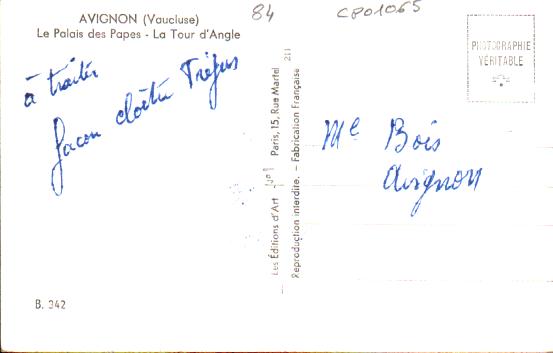 AVIGNON (Vaucluse)
Le Palais des Papes - La Tour d'Angle
84
CP01065
à traiter
façon cloître Fréjus
PHOTOGRAPHIE
VÉRITABLE
Mle Bois
Avignon
Les Éditions d'Art
Paris, 15, Rue Martel
Reproduction interdite. - Fabrication Française
B. 342